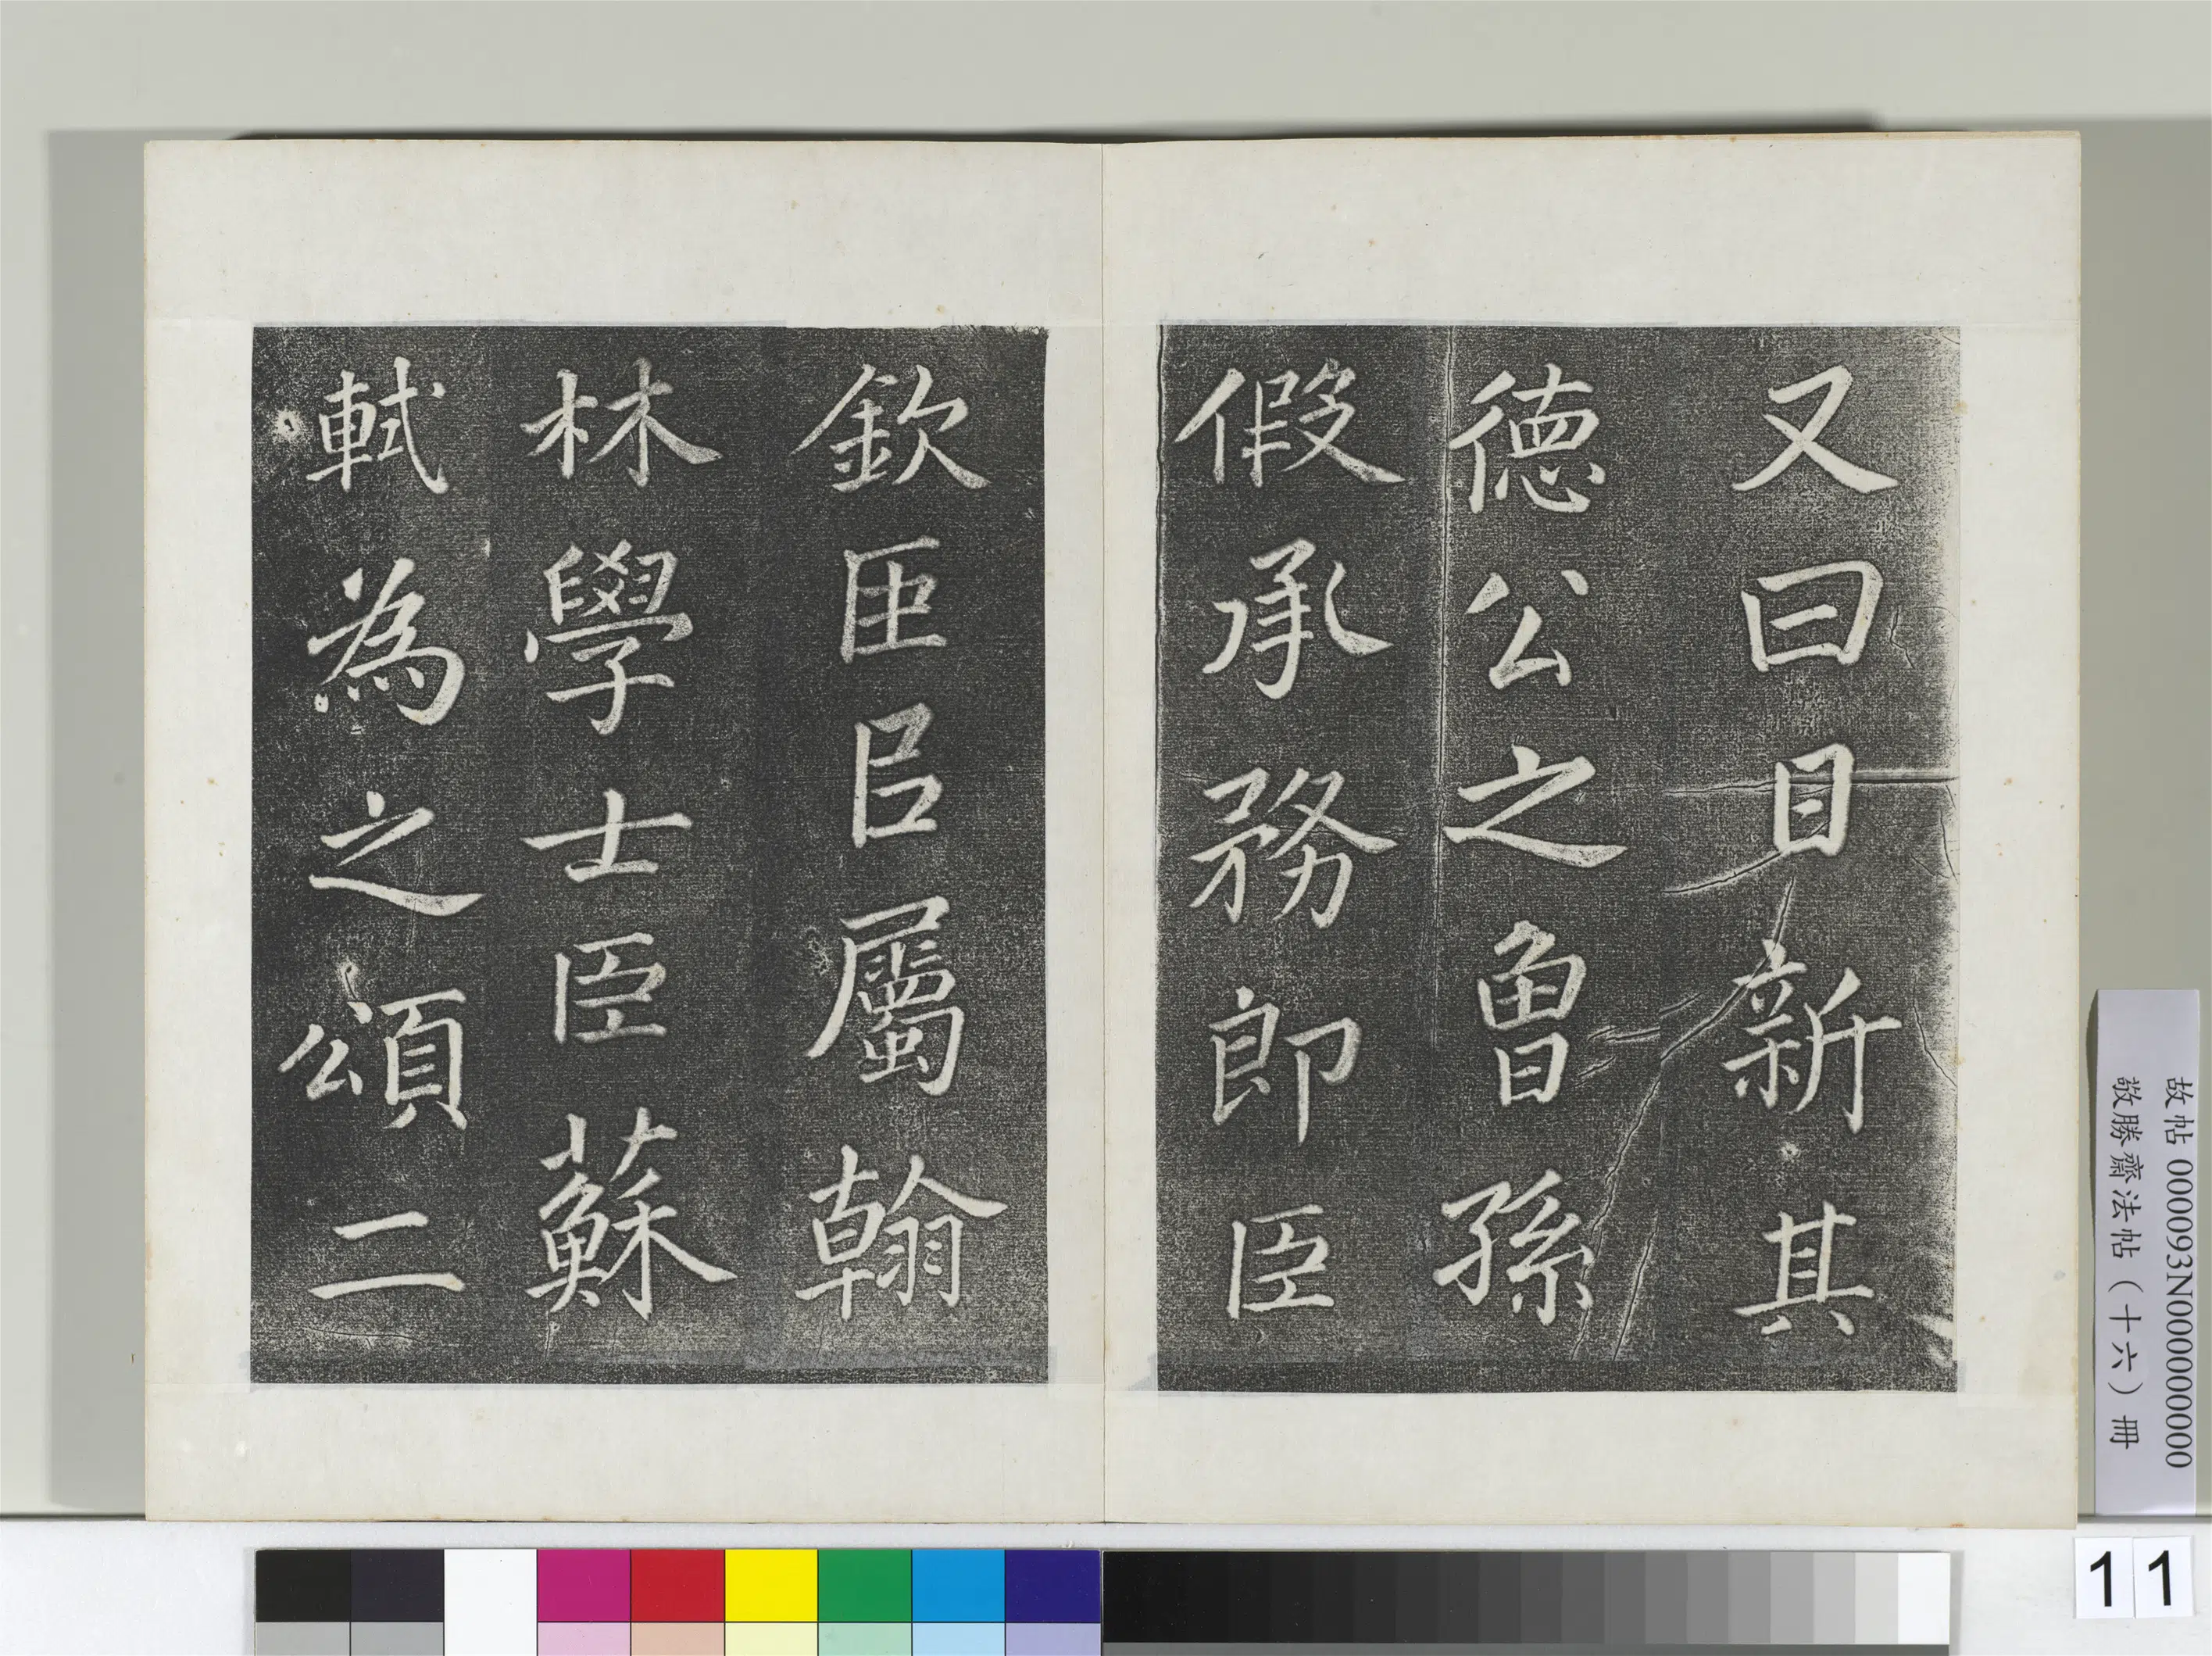 又曰日新其
德公之曾孫
假承務郎臣
欽臣㠯屬翰
林學士臣蘇
軾為之頌二
故帖 000093N000000000
敬勝齋法帖（十六）冊
11